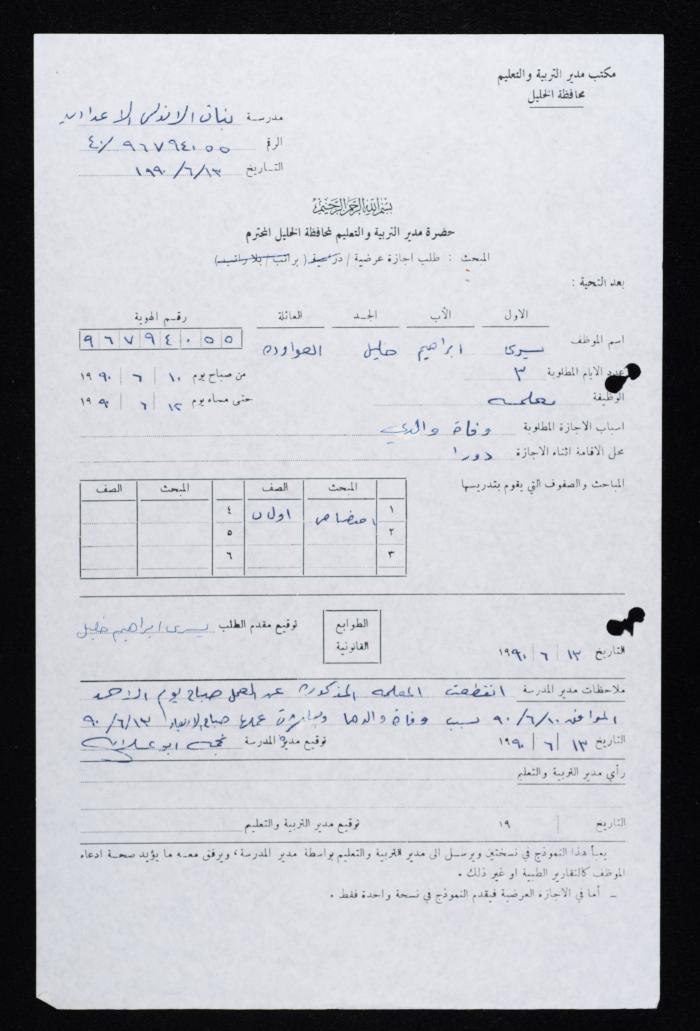 مكتب مدير التربية والتعليم
محافظة الخليل
مدرسة بنات الاندلس الاعدادية
الرقم ٤٠/٩٦٧٩٤٠٥٥
التاريخ ١٩٩٠/٦/١٣
بسم الله الرحمن الرحيم
حضرة مدير التربية والتعليم لمحافظة الخليل المحترم
المبحث : طلب اجازة عرضية / مرضية ( براتب / بلا راتب )
بعد التحية :
الاول الأب الجد العائلة رقم الهوية
اسم الموظف يسرى ابراهيم خليل العواودة ٩٦٧٩٤٠٥٥
عدد الايام المطلوبة ٣ من صباح يوم ١٠ ٦ ١٩٩٠
الوظيفة معلمة حتى مساء يوم ١٢ ٦ ١٩٩٠
اسباب الاجازة المطلوبة وفاة والدي
محل الاقامة اثناء الاجازة دورا
المباحث والصفوف التي يقوم بتدريسها
المبحث الصف المبحث الصف
١ اختصاص اول ٤
٢ ٥
٣ ٦
الطوابع القانونية
توقيع مقدم الطلب يسرى ابراهيم خليل
التاريخ ١٣ / ٦ / ١٩٩٠
ملاحظات مدير المدرسة انقطعت المعلمة المذكورة عن العمل صباح يوم الاحد
الموافق ٩٠/٦/١٠ بسبب وفاة والدها وباشرت عملها صباح الاربعاء ٩٠/٦/١٣
التاريخ ١٣ / ٦ / ١٩٩٠ توقيع مدير المدرسة
رأي مدير التربية والتعليم
التاريخ ١٩ توقيع مدير التربية والتعليم
يعبأ هذا النموذج في نسختين ويرسل الى مدير التربية والتعليم بواسطة مدير المدرسة ، ويرفق معه ما يؤيد صحة ادعاء
الموظف كالتقارير الطبية او غير ذلك .
ـ أما في الاجازة العرضية فيقدم النموذج في نسخة واحدة فقط .